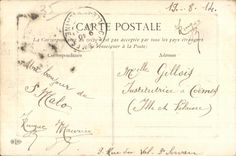 13-8-14.
CARTE POSTALE
La Correspondance au recto n'est pas acceptée par tous les pays étrangers
(Se renseigner à la Poste)
Correspondance
Adresse
Melle Gillois
Institutrice à
(Ille et Vilaine)
bonjour de
St Malo
Maurice
2 Rue du Val, St Servan